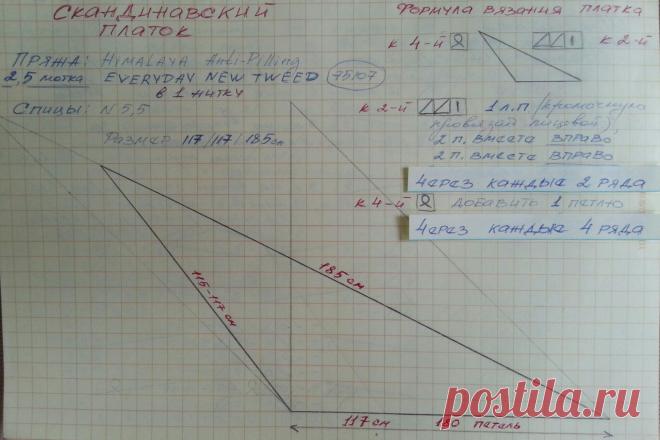 СКАНДИНАВСКИЙ
ПЛАТОК
ПРЯЖА: HIMALAYA Anti-Pilling
2,5 мотка EVERYDAY NEW TWEED 75107
в 1 нитку
Спицы: N 5,5
Размер 117/117/185см
Формула вязания платка
к 4-й
к 2-й
к 2-й 1 л.п (кромочную
провязать лицевой)
2 п. вместе вправо
2 п. вместе вправо
через каждые 2 ряда
к 4-й добавить 1 петлю
через каждые 4 ряда
185 см
115-117 см
117 см 180 петель
postila.ru